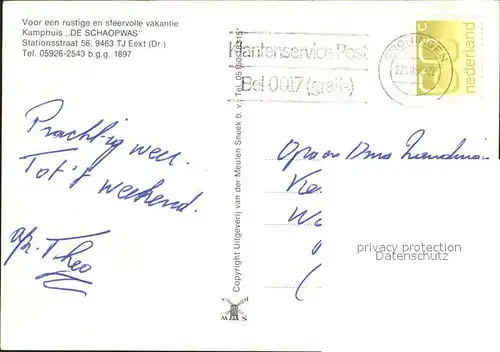 Voor een rustige en sfeervolle vakantie
Kamphuis „DE SCHAOPWAS"
Stationsstraat 56, 9463 TJ Eext (Dr.)
Tel. 05926-2543 b.g.g. 1897
Klantenservice Post
Bel 0017 (gratis)
GRONINGEN
nederland
Prachtig weer.
Tot 't weekend.
Theo
Copyright Uitgeverij van der Meulen Sneek b.v. Tel. 05150-12315
Opa en Oma
privacy protection
Datenschutz